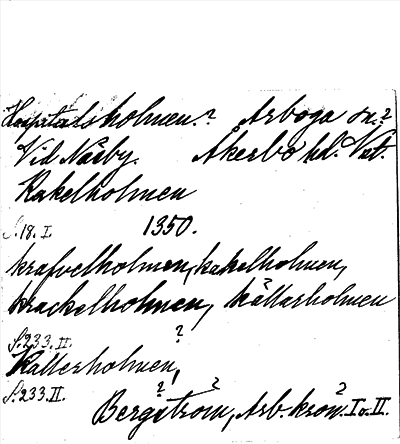 Hospitalsholmen.? Arboga sn.?
Vid Näsby. Åkerbo hd. Vstm.
Kakelholmen
S. 18. I. 1350.
krafvelholmen, kakelholmen,
krackelholmen, källarholmen
S. 233. II. ?
Källerholmen,
S. 233. II. ? ? ?
Bergström, Arb. krön. I o. II.